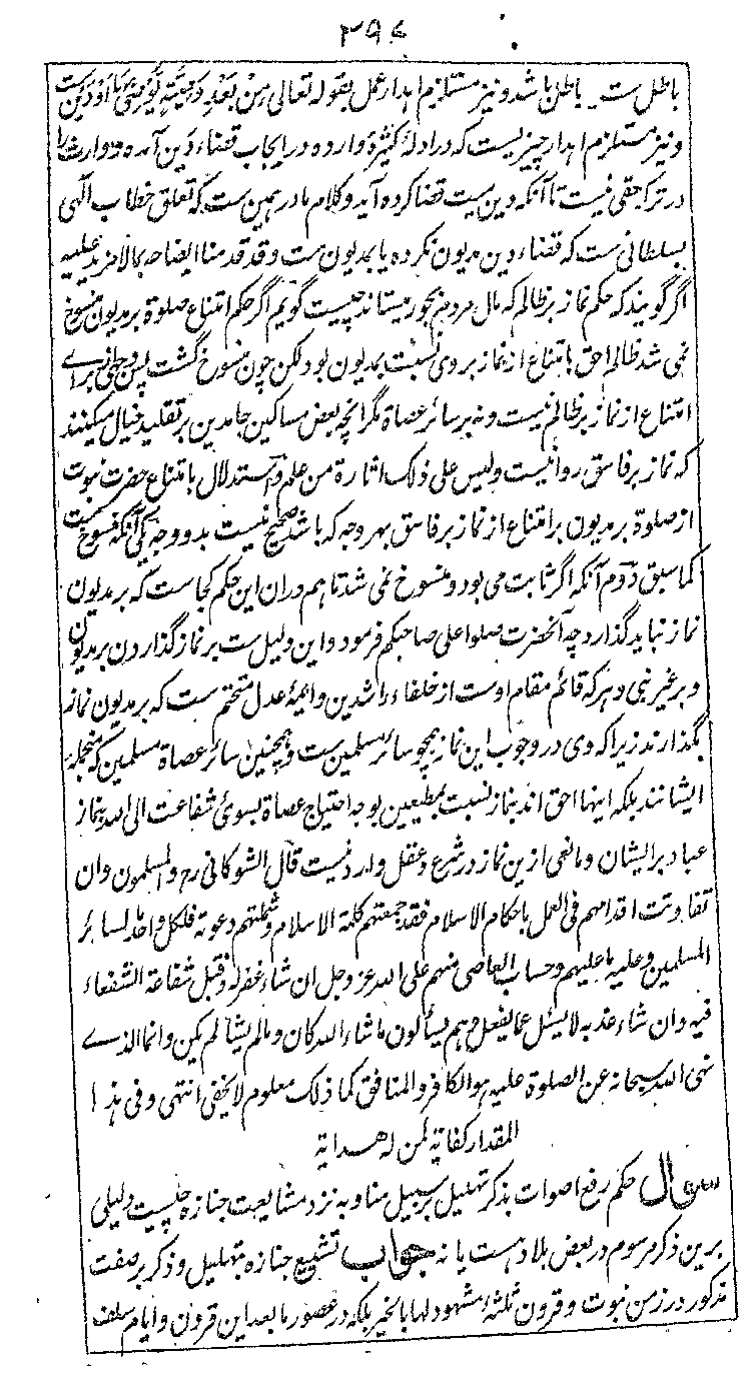 ۳۹۶
باطل ست باطل باشد و نیز مستلزم اہدار عمل بقولہ تعالی مِنْ بَعْدِ وَصِیَّةٍ یُوْصٰی بِہَا اَوْ دَیْن ست
و نیز مستلزم اہدار چیزیست کہ در ادلۂ کثیرۂ واردہ در ایجاب قضاء دَین آمدہ و وارث را
در ترکہ حقی نیست تا آنکہ دین میت قضا کردہ آید و کلام ما در ہمین ست کہ تعلق خطاب الٰہی
بسلطانی ست کہ قضاء دین مدیون نکردہ یا بمدیون ست و قد قدمنا ایضاحہ بما لا مزید علیہ
اگر گویند کہ حکم نماز بر ظالم کہ مال مردم بجور میستاند چیست گویم اگر حکم امتناع صلوة بر مدیون منسوخ
نمی شد ظالم احق بامتناع از نماز بر وی نسبت بمدیون بود لکن چون منسوخ گشت پس وجہی از برای
امتناع از نماز بر ظالم نیست و نہ بر سائر عصاة مگر انچہ بعض مساکین جامدین بر تقلید خیال میکنند
کہ نماز بر فاسق روا نیست و لیس علی ذلک اثارة من علم و استدلال بامتناع حضرت نبوت
از صلوة بر مدیون بر امتناع از نماز بر فاسق بہر وجہ کہ باشد صحیح نیست بدو وجہ یکی آنکہ منسوخ ست
کما سبق دوم آنکہ اگر ثابت می بود و منسوخ نمی شد تا ہم دران این حکم کجا ست کہ بر مدیون
نماز نباید گذارد چہ آنحضرت صلوا علی صاحبکم فرمود و این دلیل ست بر نماز گذاردن بر مدیون
و بر غیر نبی و ہر کہ قائم مقام اوست از خلفاء راشدین و ائمۂ عدل متحتم ست کہ بر مدیون نماز
بگذارند زیرا کہ وی در وجوب این نماز ہمچو سائر مسلمین ست و ہمچنین سائر عصاة مسلمین کہ منجملۂ
ایشانند بلکہ اینہا احق اند بنماز نسبت بمطیعین بوجہ احتیاج عصاة بسوی شفاعت الی اللہ بنماز
عباد بر ایشان و مانعی ازین نماز در شرع و عقل وارد نیست قال الشوکانی رح و المسلمون وان
تفاوتت اقدامہم فی العمل باحکام الاسلام فقد جمعتہم کلمة الاسلام و شملتہم دعوتہ فلکل واحد ما لسائر
المسلمین و علیہ ما علیہم و حساب العاصی منہم علی اللہ عز و جل ان شاء غفر لہ و قبل شفاعة الشفعاء
فیہ و ان شاء عذبہ لا یسئل عما یفعل و ہم یسألون ما شاء اللہ کان و ما لم یشأ لم یکن و انما الذی
نہی اللہ سبحانہ عن الصلوة علیہ ہو الکافر و المنافق کما ذلک معلوم لا یخفی انتہی و فی ہذا
المقدار کفایة لمن لہ ھدایة
سوال حکم رفع اصوات بذکر تہلیل بر سبیل مناوبہ نزد مشایعت جنازہ چیست و دلیلی
برین ذکر مرسوم در بعض بلاد ہست یا نہ جواب تشییع جنازہ بتہلیل و ذکر بر صفت
مذکور در زمن نبوت و قرون ثلثۂ مشہود لہا بالخیر بلکہ در عصور ما بعد این قرون و ایام سلف